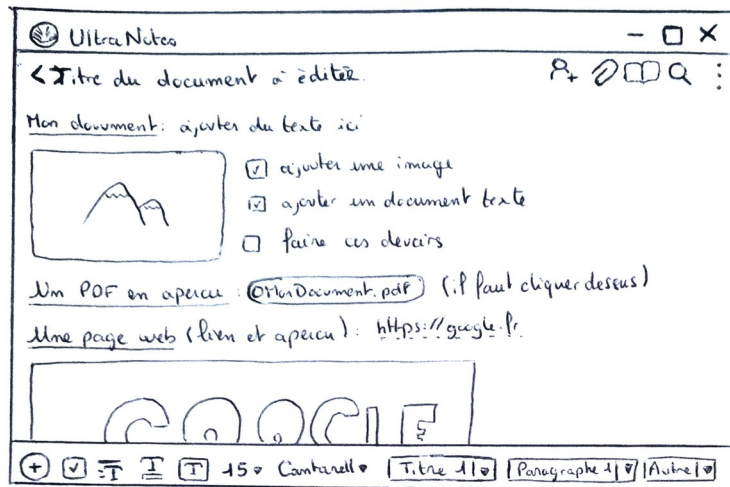 UltraNotes
< Titre du document à éditer.
Mon document : ajouter du texte ici
ajouter une image
ajouter un document texte
faire ces devoirs
Un PDF en apercu : MonDocument.pdf (il faut cliquer dessus)
Une page web (lien et apercu) : https://google.fr
GOOGLE
T T T 15 Cantarell Titre 1 Paragraphe 1 Autre